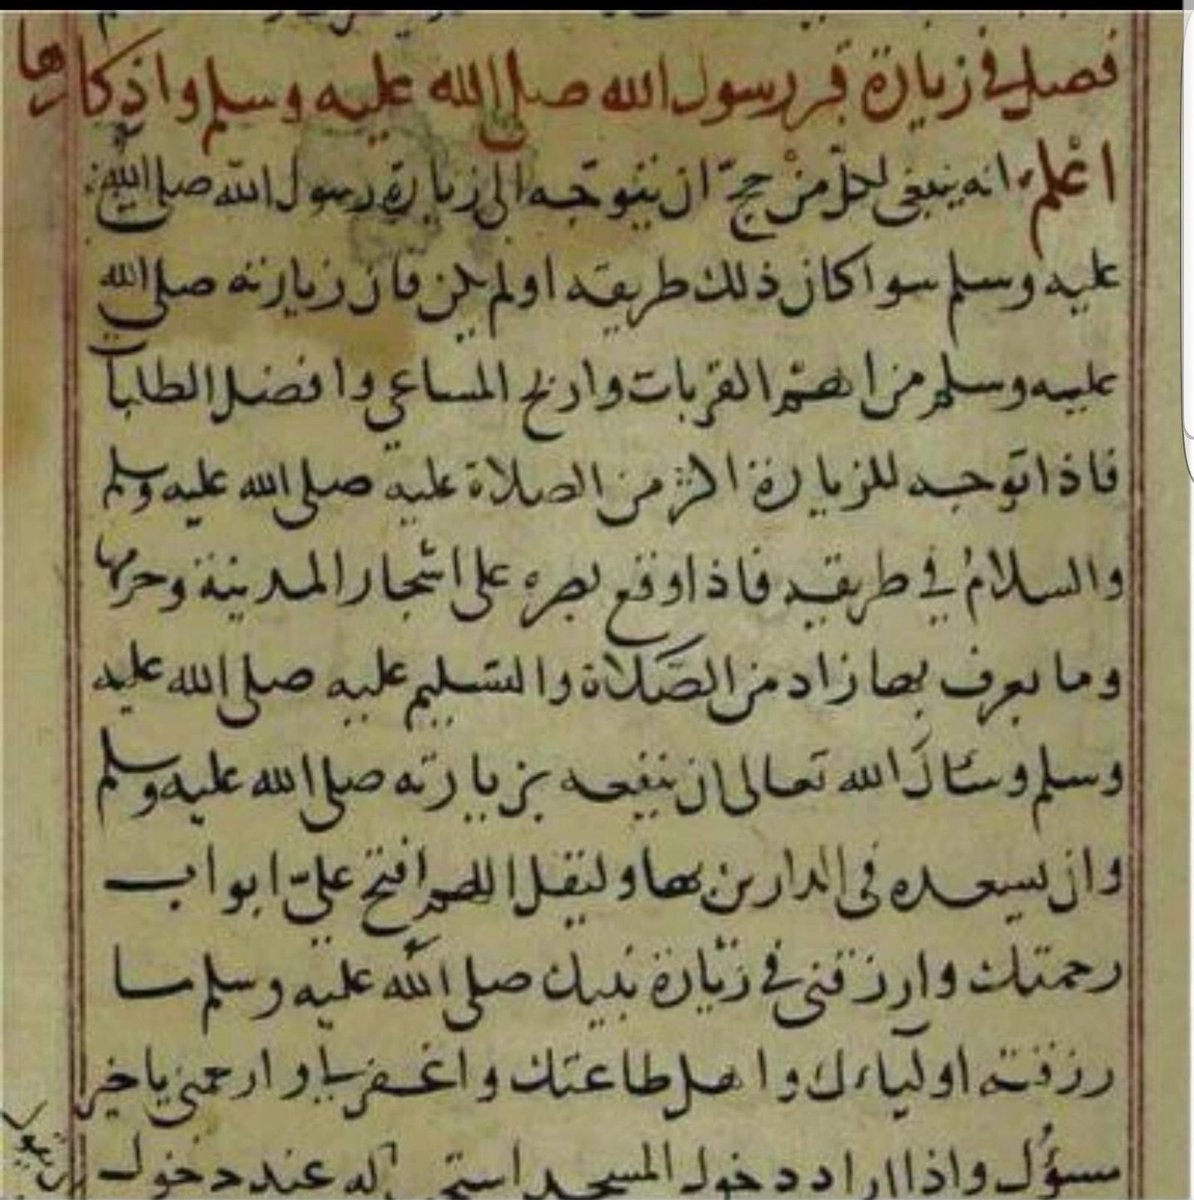 فصل في زيارة قبر رسول الله صلى الله عليه وسلم واذكارها
اعْلم انه ينبغي لكلّ منْ حجّ ان يتوجّه الى زيارة رسول الله صلى الله
عليه وسلم سوا كان ذلك طريقه او لم يكن فان زيارته صلى الله
عليه وسلم من اهم القربات واربح المساعي وافضل الطلبات
فاذا توجه للزيارة اكثر من الصلاة عليه صلى الله عليه وسلم
والسلامُ في طريقه فاذا وقع بصره على اشجار المدينة وحرمها
وما يعرف بها زاد من الصّلاة والتسليم عليه صلى الله عليه
وسلم وسَالَ الله تعالى ان ينفعه بزيارته صلى الله عليه وسلم
وان يسعده في الدارين بها وليقل اللهم افتح عليّ ابواب
رحمتك وارزقني في زيارة نبيك صلى الله عليه وسلم ما
رزقته اولياءك واهل طاعتك واغفر لي وارحمني يا خير
مسؤل واذا اراد دخول المسجد له عند دخول